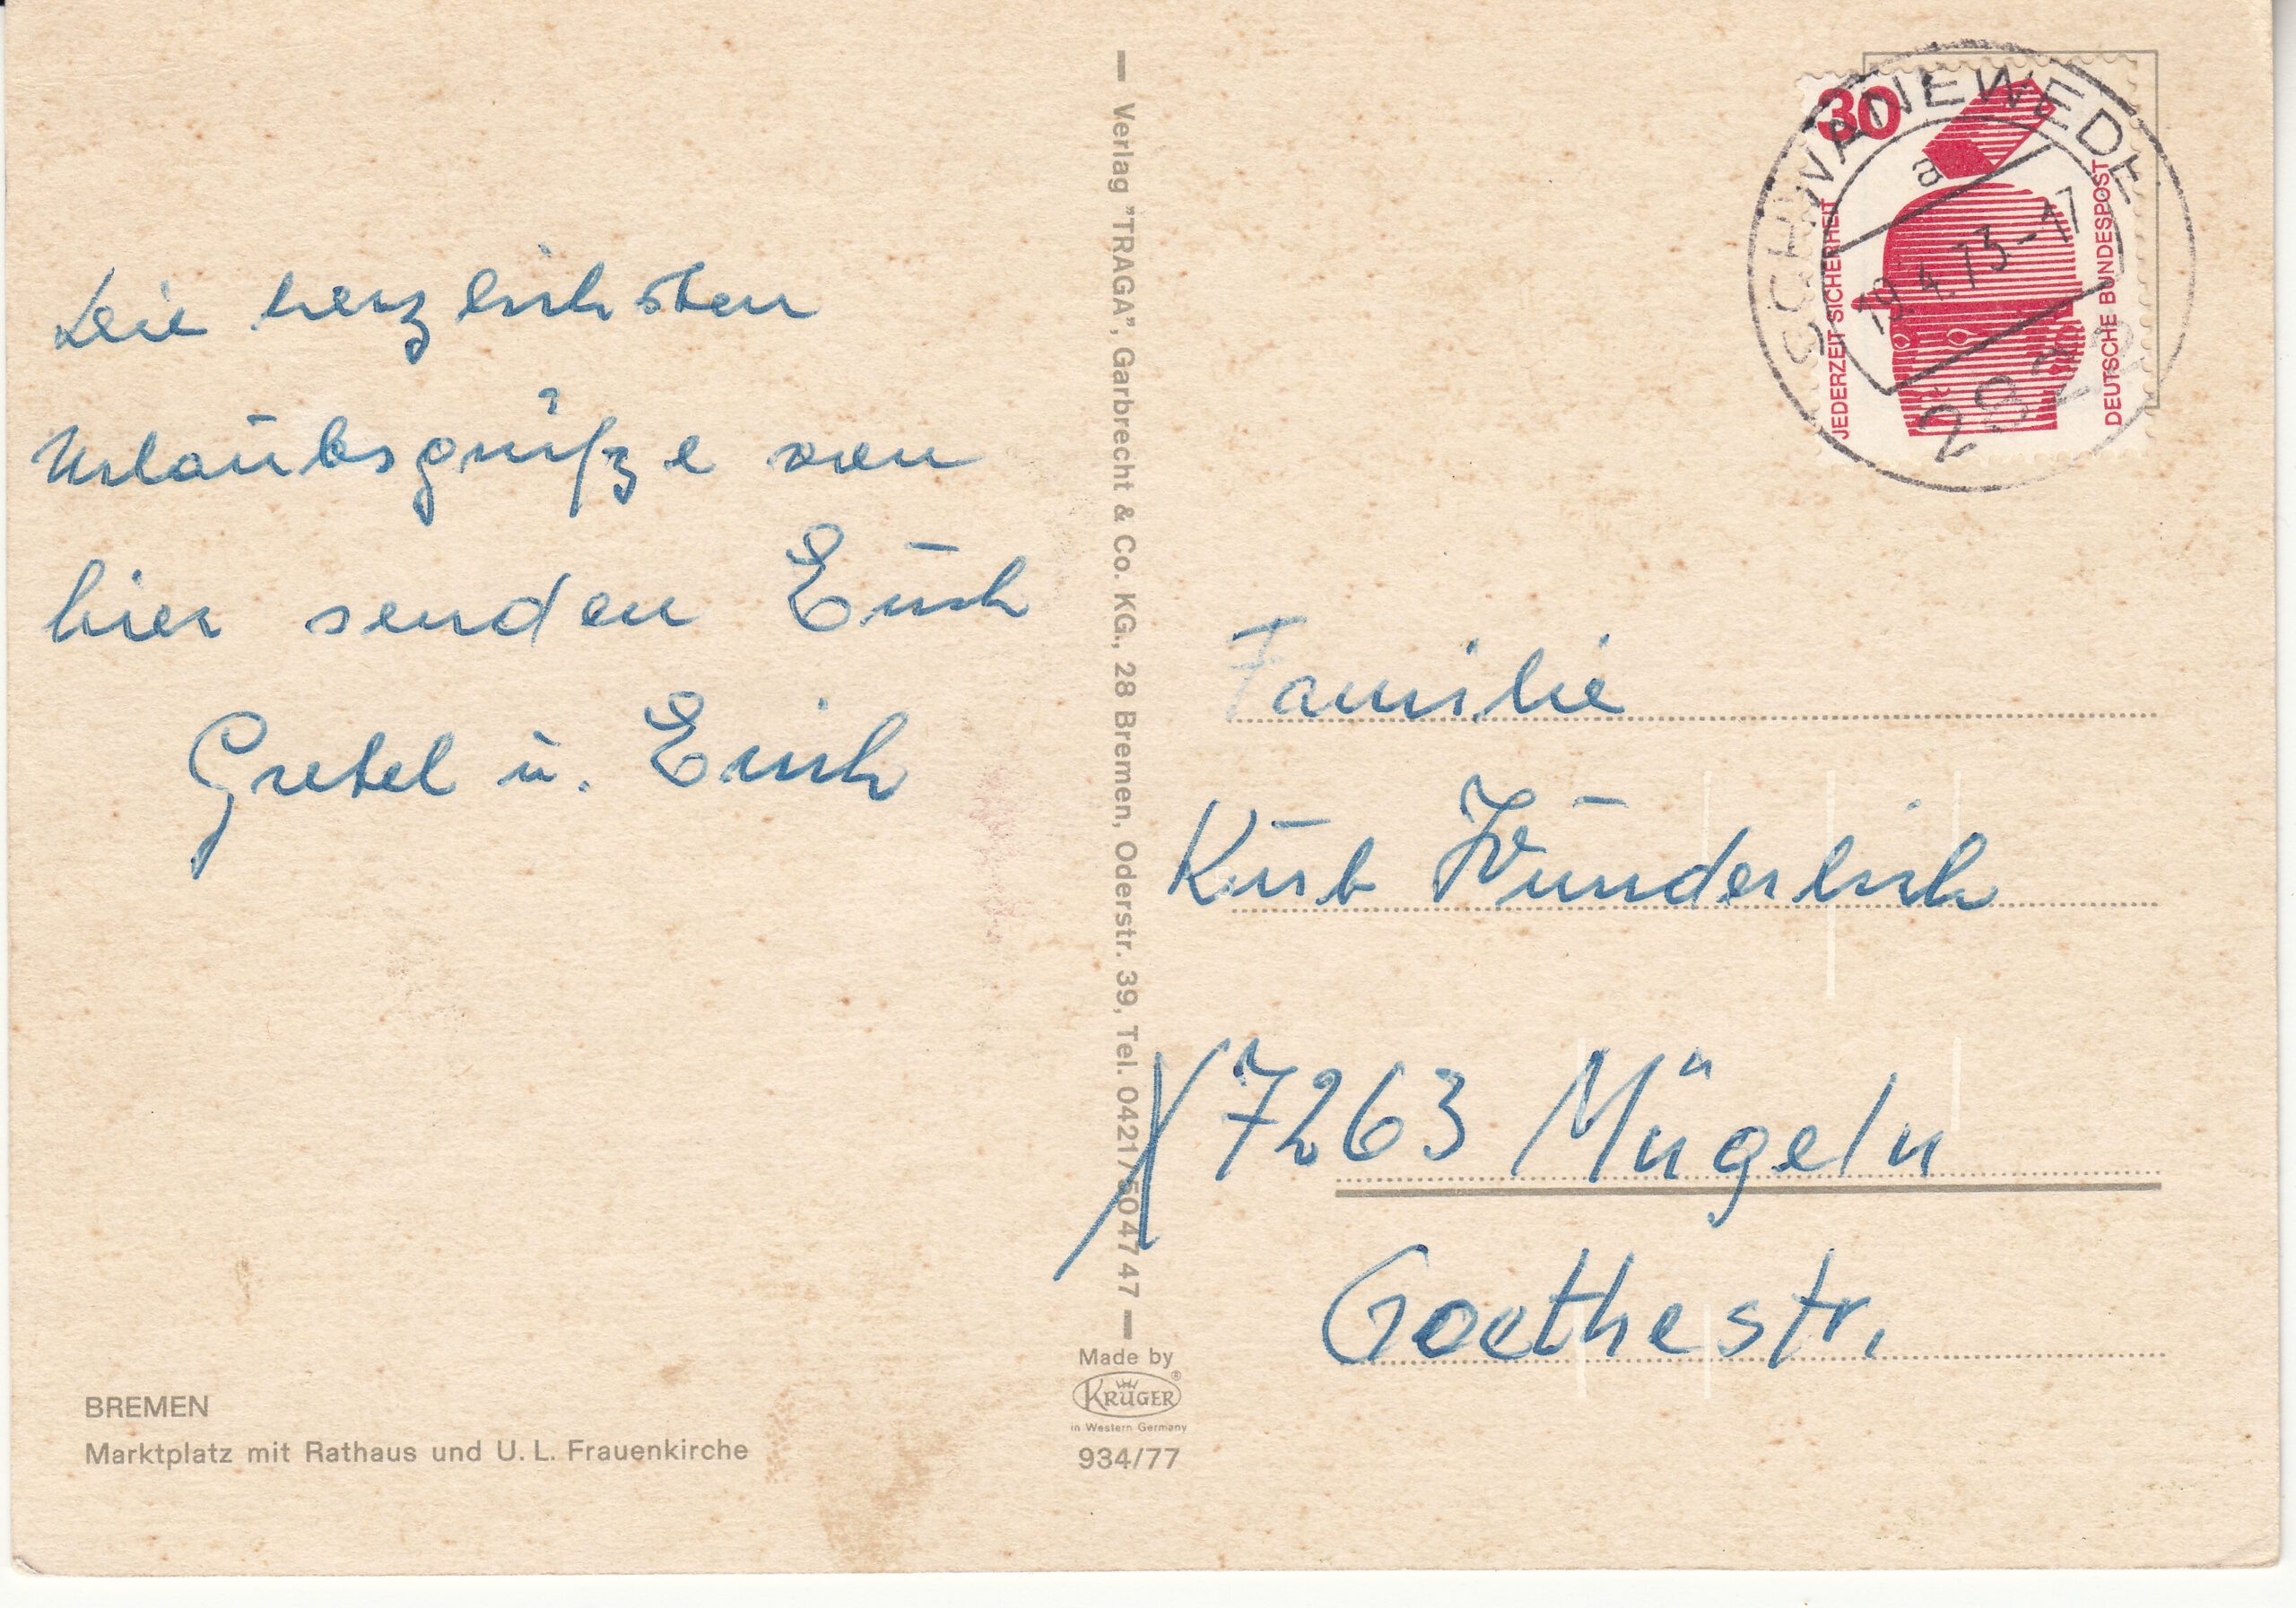 Die herzlichsten
Urlaubsgrüße von
hier senden Euch
Gretel u. Erich
BREMEN
Marktplatz mit Rathaus und U. L. Frauenkirche
Verlag "TRAGA", Garbrecht & Co. KG., 28 Bremen, Oderstr. 39, Tel. 0421/504747
Made by
KRÜGER®
in Western Germany
934/77
30
JEDERZEIT SICHERHEIT
DEUTSCHE BUNDESPOST
SCHWANEWEDE
a
19.4.73-17
2822
Familie
Kurt Wunderlich
X 7263 Mügeln
Goethestr.